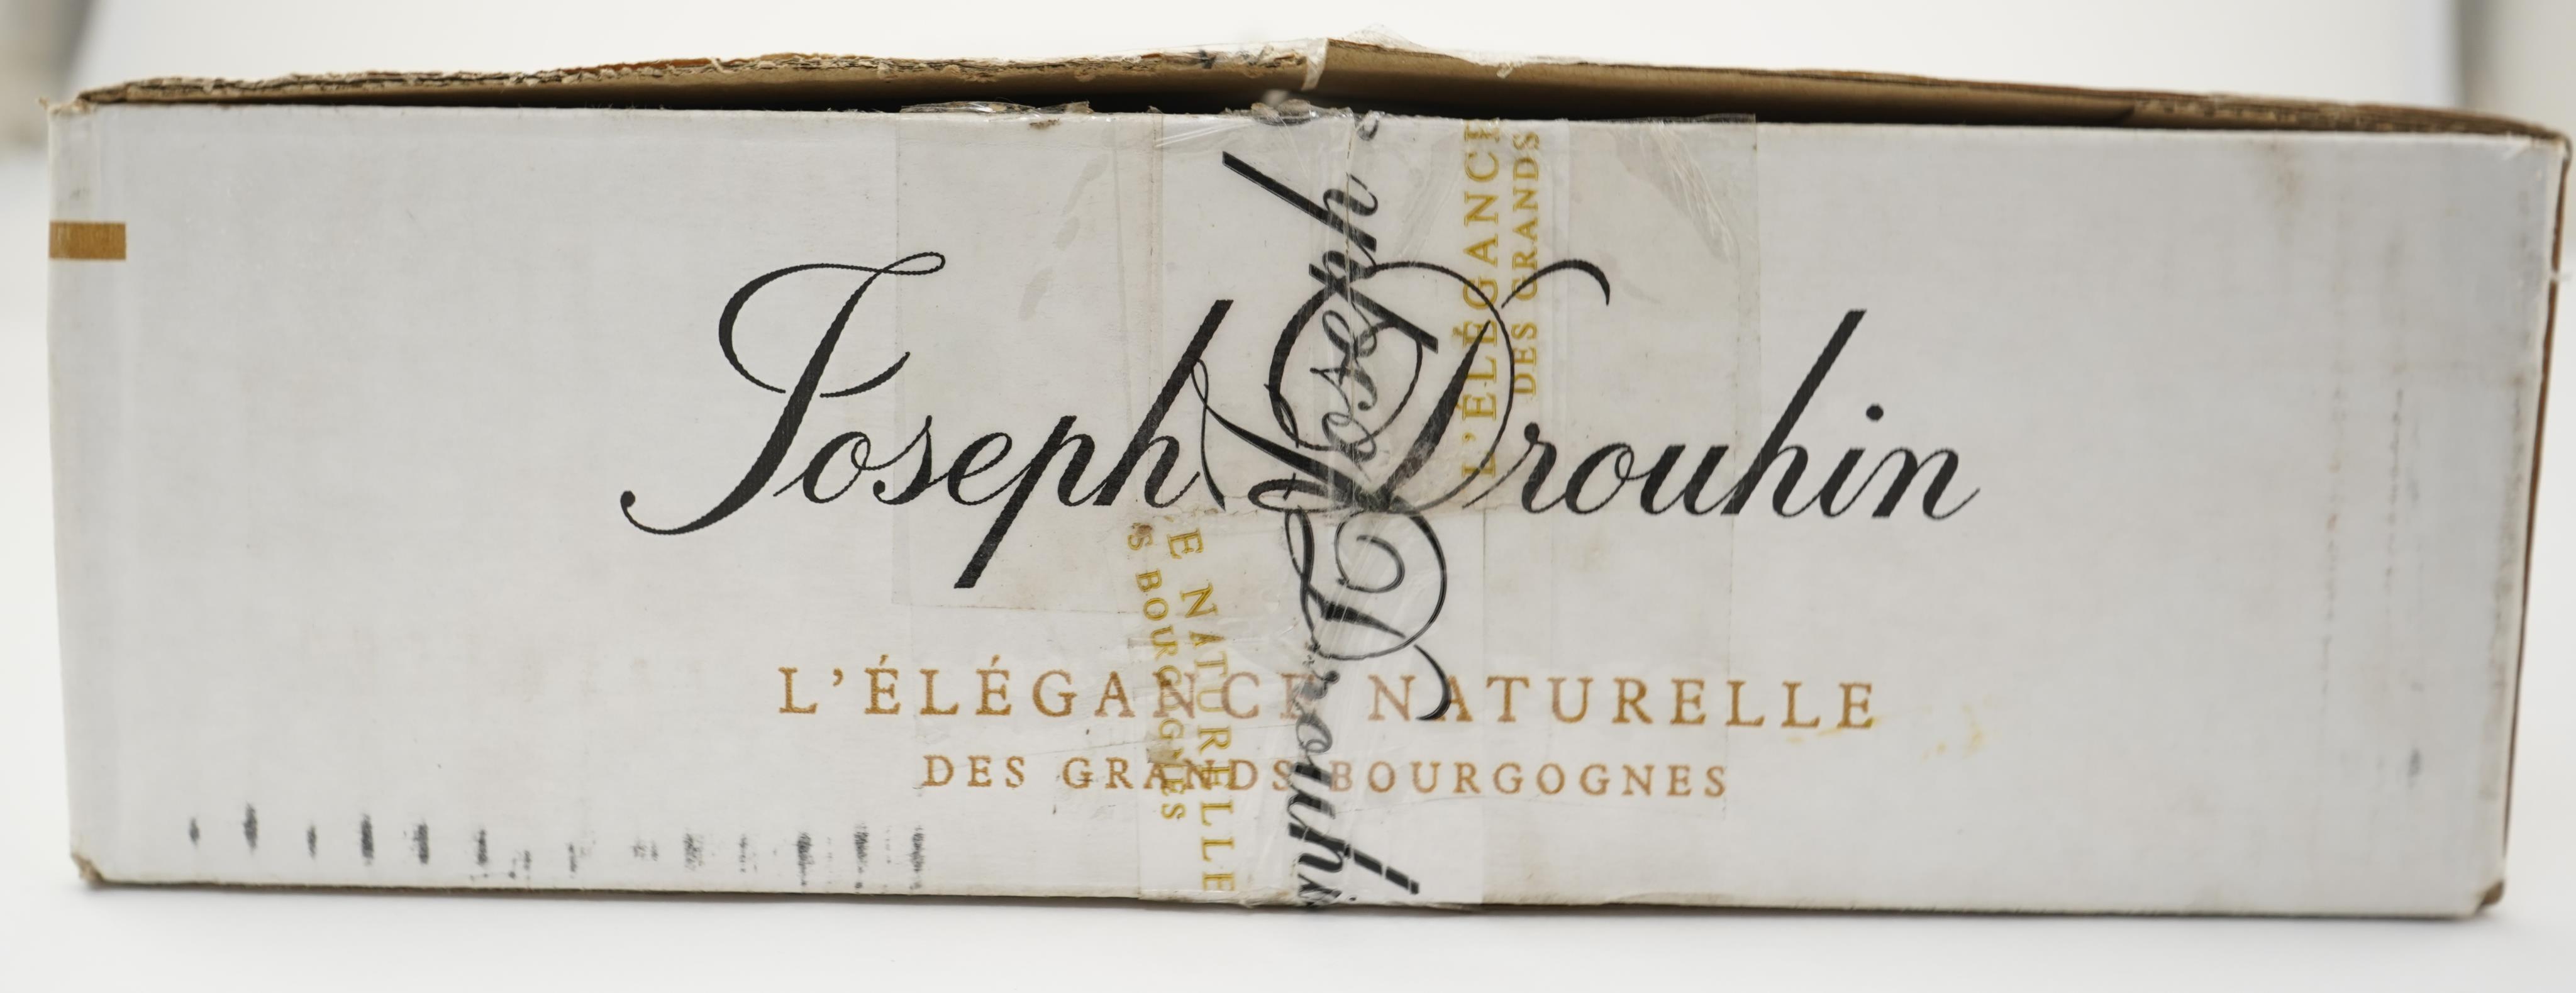 Joseph Drouhin
L'ÉLÉGANCE NATURELLE
DES GRANDS BOURGOGNES
L'ÉLÉGANCE
DES GRANDS
Joseph Drouhin
E NATURELLE
S BOURGOGNES